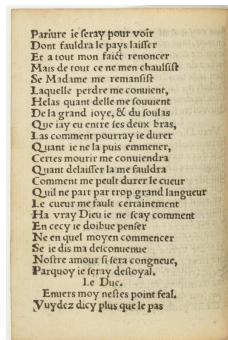 Pariure ie seray pour voir
Dont fauldra le pays laisser
Et a tout mon faict renoncer
Mais de tout ce ne men chaulsist
Se Madame me remansist
Laquelle perdre me conuient,
Helas quant delle me souuient
De la grand ioye, & du soulas
Que iay eu entre ses deux bras,
Las comment pourray ie durer
Quant ie ne la puis emmener,
Certes mourir me conuiendra
Quant delaisser la me fauldra
Comment me peult durer le cueur
Quil ne part par trop grand langueur
Le cueur me fault certainement
Ha vray Dieu ie ne scay comment
En cecy ie doibue penser
Ne en quel moyen commencer
Se ie dis ma desconuenue
Nostre amour si sera congneue,
Parquoy ie seray desloyal.
Le Duc.
Enuers moy nestes point feal.
Vuydez dicy plus que le pas